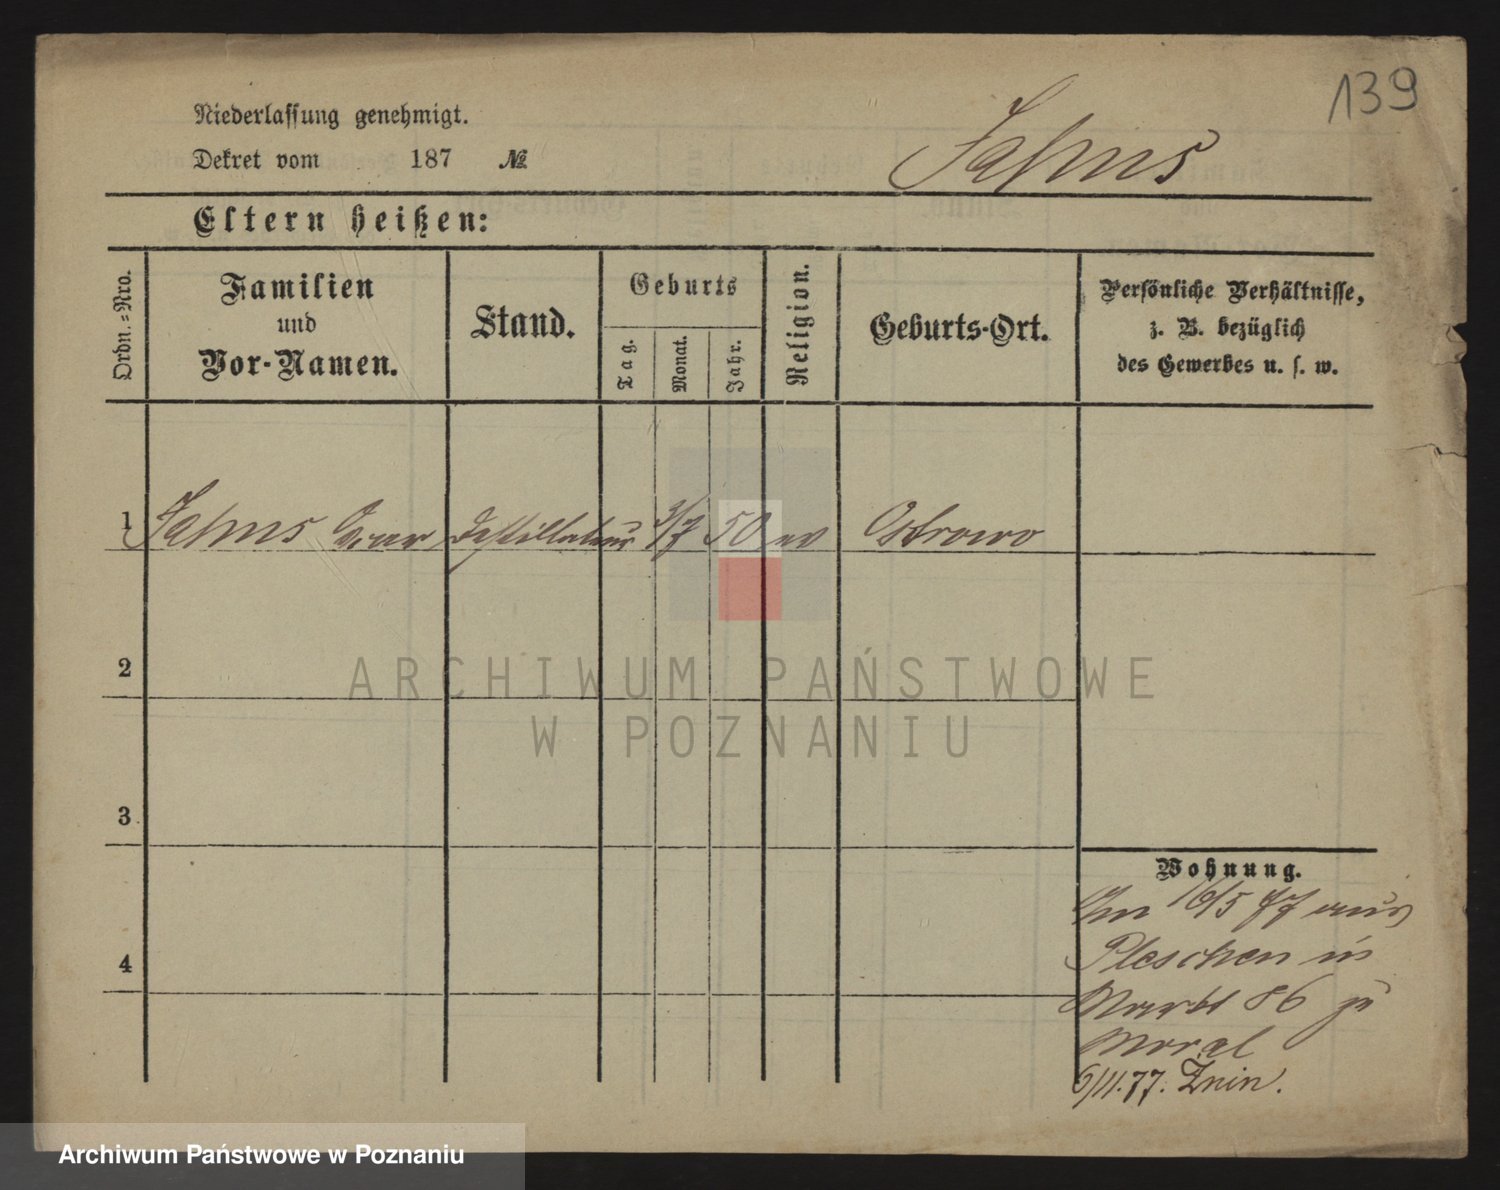 139
Niederlassung genehmigt.
Dekret vom 187 №
Jahns
Eltern heißen:
Ordn.=Nro.
Familien
und
Vor-Namen.
Stand.
Geburts
Tag.
Monat.
Jahr.
Religion.
Geburts-Ort.
Persönliche Verhältnisse,
z. B. bezüglich
des Gewerbes u. s. w.
1 Jahns Destillateur 3/7 50 ev Ostrowo
2
3
4
Wohnung.
Am 16/5 77 aus
Pleschen in
Markt 86 zu
Moral
6/11.77. Znin.
ARCHIWUM PAŃSTWOWE
W POZNANIU
Archiwum Państwowe w Poznaniu